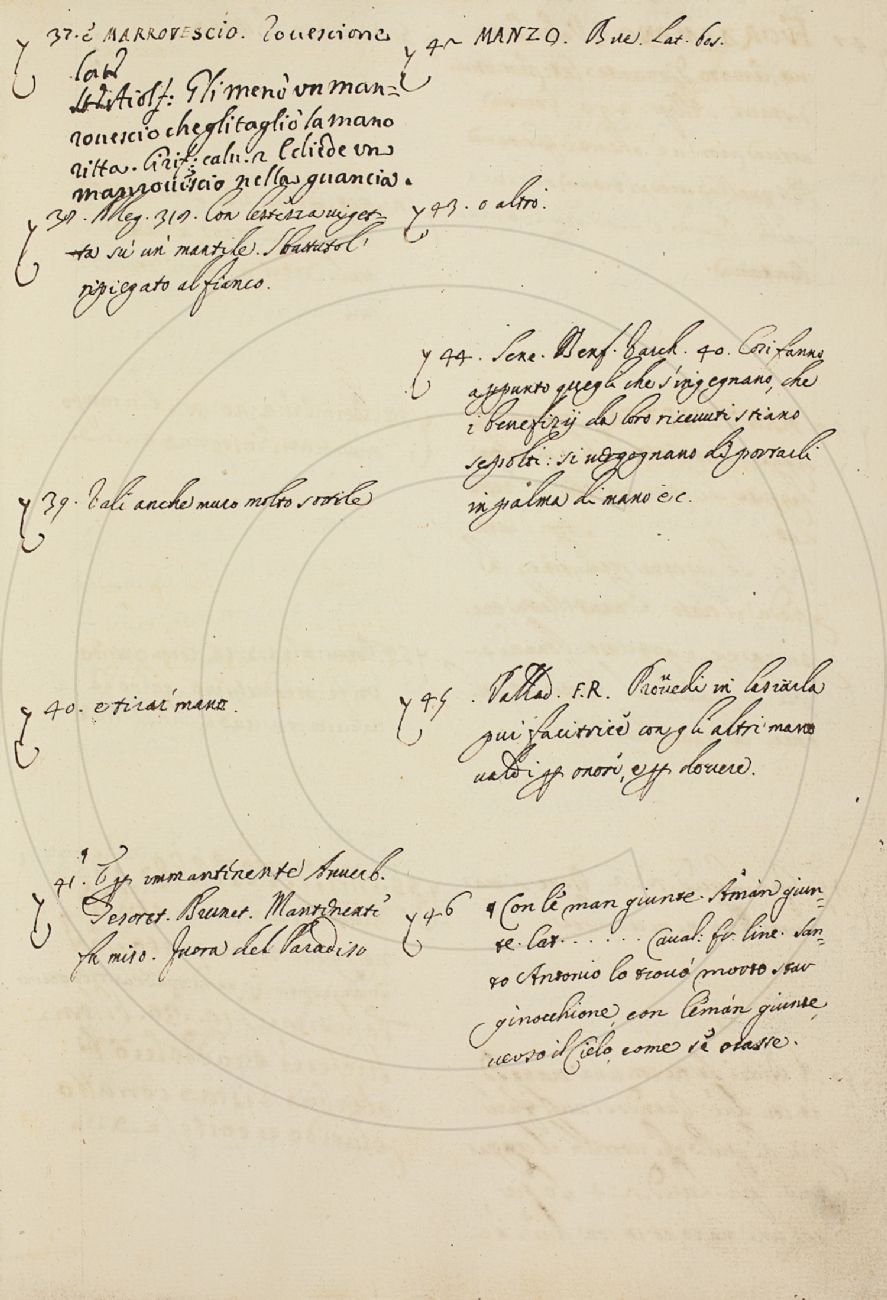 37. è MARROVESCIO. Rovescione
Lat.
Aiolf: Gli menò vn man=
rouescio che gli tagliò la mano
ritta. Grif: calu. 2 E diede vn
manrouescio nella guancia.
38. Alleg. 319. Con lestezza uiget=
ta su un' mantile. Sbattutol'
ripiegato al fianco.
39. Vali anche muro molto sottile
40. e tirar' mano.
41. E per immantinente Auuerb.
Tesoret. Brunet. Mantinente
fu miso. fuora del Paradiso
42 MANZO. Bue. Lat. bos.
43. o altro.
44. Sene. Benf. Varch. 40. Cosi fanno
appunto quegli che s'ingegnano, che
i benefizij da loro riceuuti stiano
sepolti: si uergognano di portarli
in palma di mano ec.
45. Pallad. F.R. Prouedi in lasciarla
qui facitrice con gli altri mano
ualdi per onori, e per douere.
46 Con le man giunte. A man giun=
te. lat. . . . . . Caual: fr. line. San=
to Antonio lo trouò morto star
ginocchione, con le man giunte,
uerso il Cielo, come se orasse.